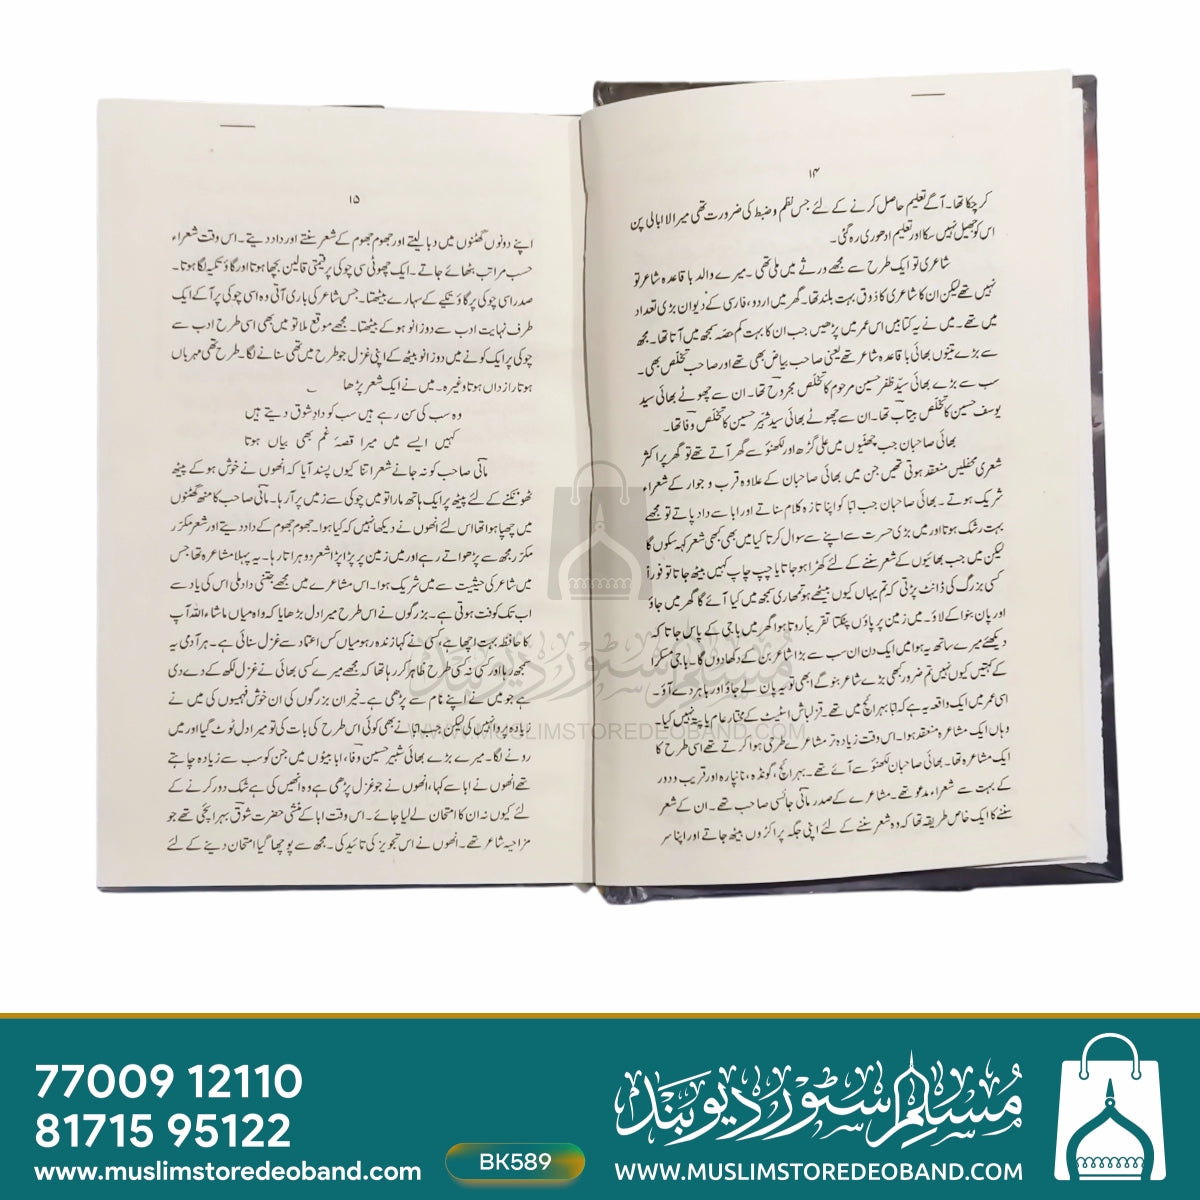 ۱۴
کر چکا تھا۔ آگے تعلیم حاصل کرنے کے لئے جس نظم و ضبط کی ضرورت تھی میرا لا ابالی پن
اس کو جھیل نہیں سکا اور تعلیم ادھوری رہ گئی۔
شاعری تو ایک طرح سے مجھے ورثے میں ملی تھی۔ میرے والد باقاعدہ شاعر تو
نہیں تھے لیکن ان کا شاعری کا ذوق بہت بلند تھا۔ گھر میں اردو، فارسی کے دیوان بڑی تعداد
میں تھے۔ میں نے یہ کتابیں اس عمر میں پڑھیں جب ان کا بہت کم حصّہ سمجھ میں آتا تھا۔ مجھ
سے بڑے تینوں بھائی باقاعدہ شاعر تھے یعنی صاحب بیاض بھی تھے اور صاحب تخلص بھی۔
سب سے بڑے بھائی سیّد ظفر حسین مرحوم کا تخلص مجروح تھا۔ ان سے چھوٹے بھائی سید
یوسف حسین کا تخلص بیتاب تھا۔ ان سے چھوٹے بھائی سید شبیر حسین کا تخلص وفا تھا۔
بھائی صاحبان جب چھٹیوں میں علی گڑھ اور لکھنؤ سے گھر آتے تھے تو گھر پر اکثر
شعری محفلیں منعقد ہوتی تھیں جن میں بھائی صاحبان کے علاوہ قرب و جوار کے شعراء
شریک ہوتے۔ بھائی صاحبان جب ابّا کو اپنا تازہ کلام سناتے اور ابا سے داد پاتے تو مجھے
بہت رشک ہوتا اور میں بڑی حسرت سے اپنے سے سوال کرتا کیا میں بھی کبھی شعر کہہ سکوں گا
لیکن میں جب بھائیوں کے شعر سننے کے لئے کھڑا ہو جاتا یا چپ چاپ کہیں بیٹھ جاتا تو فوراً
کسی بزرگ کی ڈانٹ پڑتی کہ تم یہاں کیوں بیٹھے ہو تمھاری سمجھ میں کیا آئے گا گھر میں جاؤ
اور پان بنوا کے لاؤ۔ میں زمین پر پاؤں پٹکتا تقریباً روتا ہوا گھر میں باجی کے پاس جاتا کہ
دیکھئے میرے ساتھ یہ ہوا میں ایک دن ان سب سے بڑا شاعر بن کے دکھا دوں گا۔ باجی مسکرا
کے کہتیں کیوں نہیں تم ضرور کبھی بڑے شاعر بنو گے ابھی تو یہ پان لے جاؤ اور باہر دے آؤ۔
اسی عمر میں ایک واقعہ یہ ہے کہ ابّا بہرائچ میں تھے۔ قزلباش اسٹیٹ کے مختار عام یا پتہ نہیں کیا۔
وہاں ایک مشاعرہ منعقد ہوا۔ اس وقت زیادہ تر مشاعرے طرحی ہوا کرتے تھے اسی طرح کا
ایک مشاعرہ تھا۔ بھائی صاحبان لکھنؤ سے آئے تھے۔ بہرائچ، گونڈہ، نانپارہ اور قریب و دور
کے بہت سے شعراء مدعو تھے۔ مشاعرے کے صدر مانی جائسی صاحب تھے۔ ان کے شعر
سننے کا ایک خاص طریقہ تھا کہ وہ شعر سننے کے لئے اپنی جگہ پر اکڑوں بیٹھ جاتے اور اپنا سر
۱۵
اپنے دونوں گھٹنوں میں دبا لیتے اور جھوم جھوم کے شعر سنتے اور داد دیتے۔ اس وقت شعراء
حسب مراتب بٹھائے جاتے۔ ایک چھوٹی سی چوکی پر قیمتی قالین بچھا ہوتا اور گاؤ تکیہ لگا ہوتا۔
صدر اسی چوکی پر گاؤ تکیے کے سہارے بیٹھتا۔ جس شاعر کی باری آتی وہ اسی چوکی پر آ کے ایک
طرف نہایت ادب سے دوزانو ہو کے بیٹھتا۔ مجھے موقع ملا تو میں بھی اسی طرح ادب سے
چوکی پر ایک کونے میں دوزانو بیٹھ کے اپنی غزل جو طرح میں تھی سنانے لگا۔ طرح تھی مہرباں
ہوتا رازداں ہوتا وغیرہ۔ میں نے ایک شعر پڑھا ؎
وہ سب کی سن رہے ہیں سب کو دادِ شوق دیتے ہیں
کہیں ایسے میں میرا قصۂ غم بھی بیاں ہوتا
مانی صاحب کو نہ جانے شعر اتنا کیوں پسند آیا کہ انھوں نے خوش ہو کے پیٹھ
ٹھونکنے کے لئے پیٹھ پر ایک ہاتھ مارا تو میں چوکی سے زمیں پر آ رہا۔ مانی صاحب کا منھ گھٹنوں
میں چھپا ہوا تھا اس لئے انھوں نے دیکھا نہیں کہ کیا ہوا۔ جھوم جھوم کے داد دیتے اور شعر مکرر
مکرر مجھ سے پڑھواتے رہے اور میں زمین پر پڑا پڑا شعر دوہراتا رہا۔ یہ پہلا مشاعرہ تھا جس
میں شاعر کی حیثیت سے میں شریک ہوا۔ اس مشاعرے میں مجھے جتنی داد ملی اس کی یاد سے
اب تک کوفت ہوتی ہے۔ بزرگوں نے اس طرح میرا دل بڑھایا کہ واہ میاں ماشاء اللہ آپ
کا حافظہ بہت اچھا ہے، کسی نے کہا زندہ رہو میاں کس اعتماد سے غزل سنائی ہے۔ ہر آدمی یہ
سمجھ رہا اور کسی نہ کسی طرح ظاہر کر رہا تھا کہ مجھے میرے کسی بھائی نے غزل لکھ کے دے دی
ہے جو میں نے اپنے نام سے پڑھی ہے۔ خیر ان بزرگوں کی ان خوش فہمیوں کی میں نے
زیادہ پروا نہیں کی لیکن جب ابّا نے بھی کوئی اس طرح کی بات کی تو میرا دل ٹوٹ گیا اور میں
رونے لگا۔ میرے بڑے بھائی شبیر حسین وفا، ابا بیٹوں میں جن کو سب سے زیادہ چاہتے
تھے انھوں نے ابا سے کہا، انھوں نے جو غزل پڑھی ہے وہ انھیں کی ہے شک دور کرنے کے
لئے کیوں نہ ان کا امتحان لے لیا جائے۔ اس وقت ابا کے منشی حضرت شوق بہرائچی تھے جو
مزاحیہ شاعر تھے۔ انھوں نے اس تجویز کی تائید کی۔ مجھ سے پوچھا گیا امتحان دینے کے لئے
مسلم سٹور دیوبند
WWW.MUSLIMSTOREDEOBAND.COM
77009 12110
81715 95122
www.muslimstoredeoband.com
BK589
مسلم سٹور دیوبند
WWW.MUSLIMSTOREDEOBAND.COM